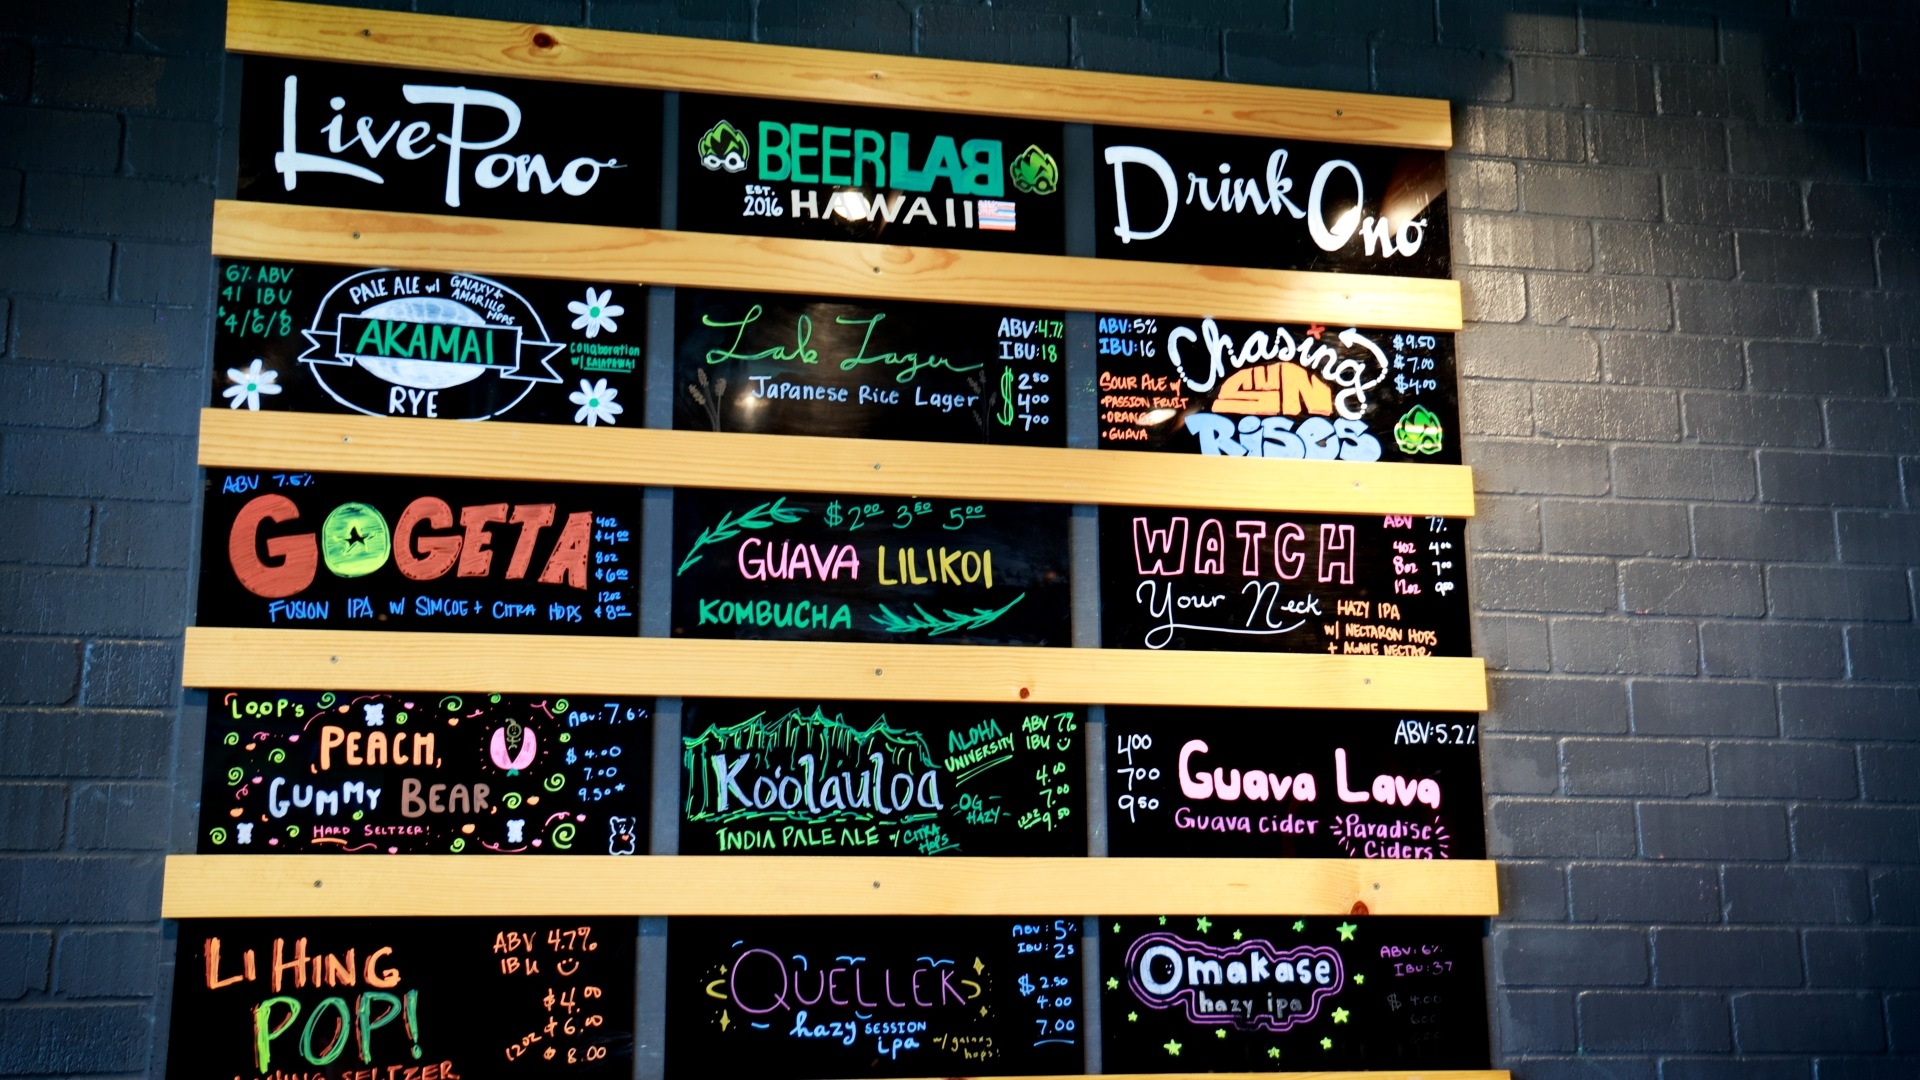 Live Pono
BEER LAB
EST. 2016
HAWAII
Drink Ono
6% ABV
41 IBU
$4/6/8
PALE ALE w/ GALAXY + AMARILLO HOPS
AKAMAI
RYE
Collaboration
w/
Lab Lager
Japanese Rice Lager
ABV: 4.7%
IBU: 18
$ 2.50
4.00
7.00
ABV: 5%
IBU: 16
SOUR ALE w/
• PASSION FRUIT
• ORANGE
• GUAVA
Chasing
SUN
RISES
$9.50
$7.00
$4.00
ABV 7.5%
GOGETA
FUSION IPA w/ SIMCOE + CITRA HOPS
4oz
$4.00
8oz
$6.00
12oz
$8.00
$2.00 3.50 5.00
GUAVA LILIKOI
KOMBUCHA
WATCH
Your Neck
ABV 7%
4oz 4.00
8oz 7.00
12oz 9.00
HAZY IPA
w/ NECTARON HOPS
+ AGAVE NECTAR
LOOP'S
PEACH,
GUMMY BEAR,
HARD SELTZER!
ABV: 7.6%
$ 4.00
7.00
9.50
Ko'olauloa
INDIA PALE ALE w/ CITRA HOPS
ALOHA
UNIVERSITY
-OG-
HAZY-
ABV 7%
IBU
4.00
7.00
12oz 9.50
4.00
7.00
9.50
ABV: 5.2%
Guava Lava
Guava cider
Paradise
Ciders
LI HING
POP!
ABV 4.7%
IBU
$4.00
$6.00
12oz $8.00
QUELLEK
hazy SESSION
ipa
w/ galaxy
hops!
ABV: 5%
IBU: 25
$ 2.50
4.00
7.00
Omakase
hazy ipa
ABV: 6%
IBU: 37
$ 4.00